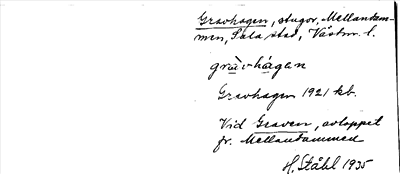 Gravhagen, stugor, Mellandam-
men, Sala stad, Västm. l.
gràvhágan
Gravhagen 1921 kb.
Vid Graven, avloppet
fr. Mellandammen
H. Ståhl 1935